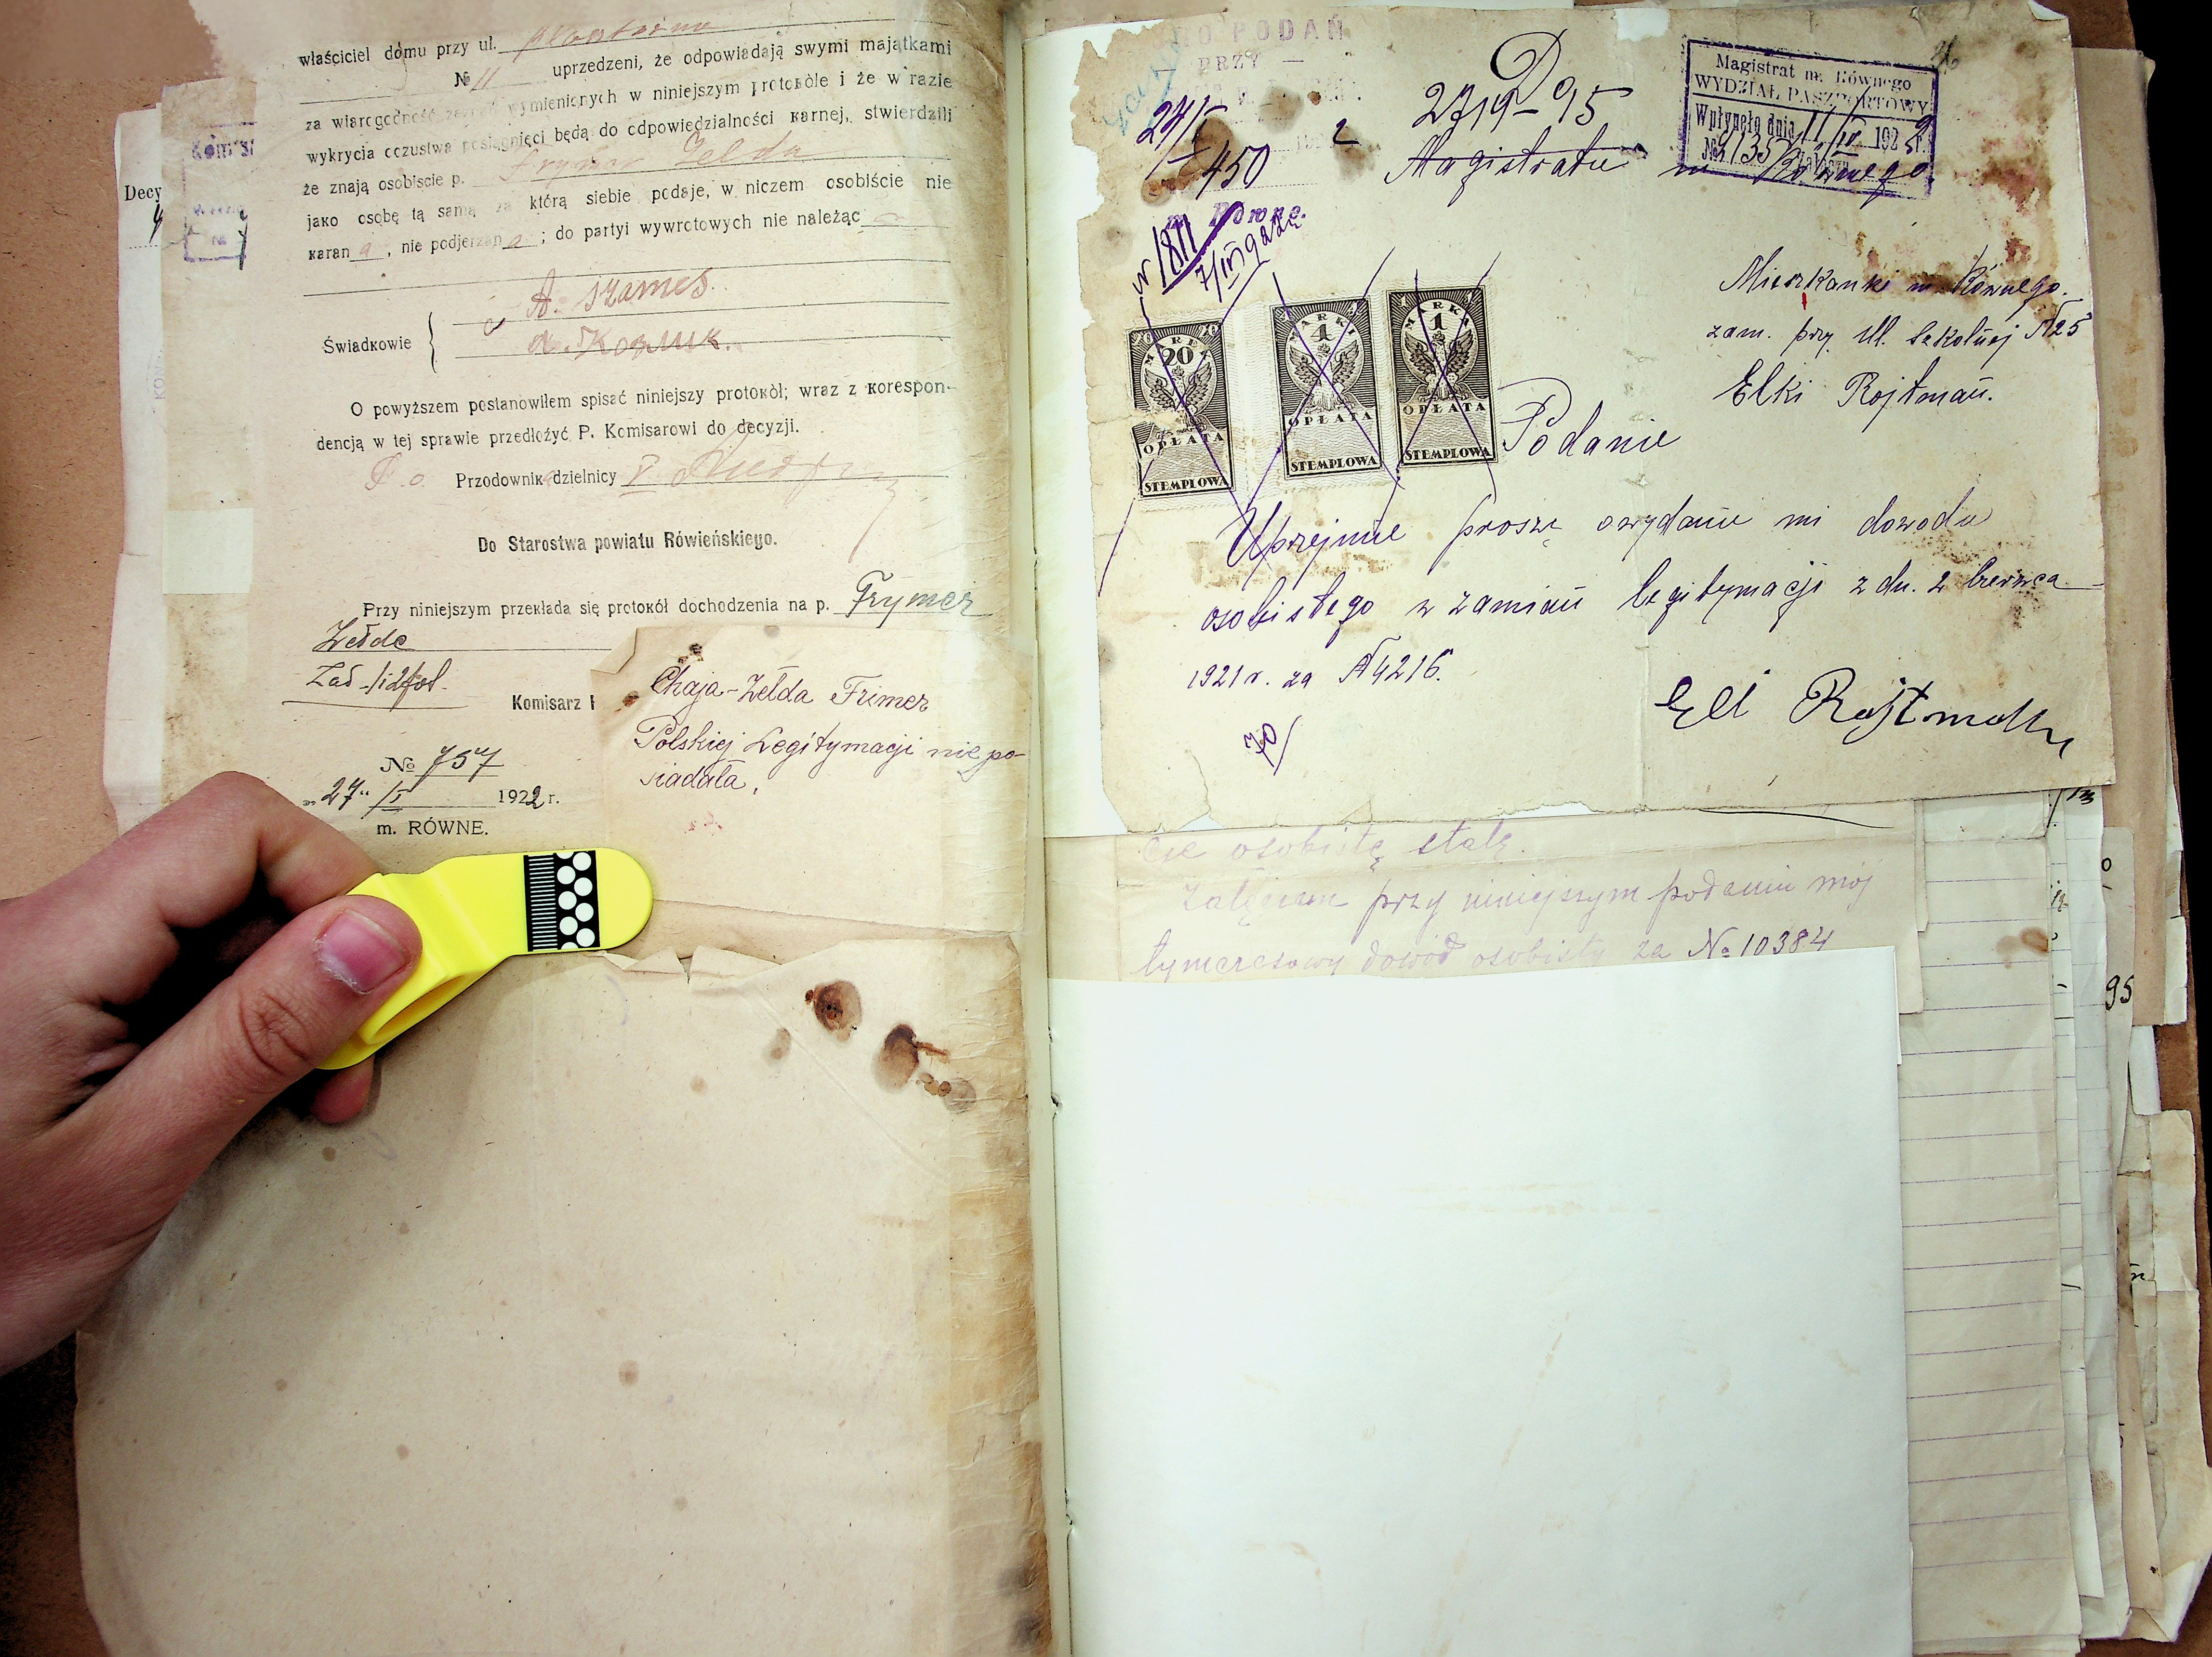 właściciel domu przy ul.
№ 11 uprzedzeni, że odpowiadają swymi majątkami
za wiarogodność zeznań wymienionych w niniejszym protokóle i że w razie
wykrycia oszustwa posiągnięci będą do odpowiedzialności karnej, stwierdzili
że znają osobiscie p. Frymer Zelda
jako osobę tą samą za którą siebie podaje, w niczem osobiście nie
karan a, nie podjerzan a; do partyi wywrotowych nie należąc
A. Szames
Świadkowie
O powyższem postanowiłem spisać niniejszy protokół; wraz z korespon-
dencją w tej sprawie przedłożyć P. Komisarowi do decyzji.
Przodownik dzielnicy
Do Starostwa powiatu Rówieńskiego.
Przy niniejszym przekłada się protokół dochodzenia na p. Frymer
Zełdę
Komisarz
№ 757
„27" /I 1922 r.
m. RÓWNE.
Chaja-Zełda Frimer
Polskiej Legitymacji nie po-
siadała,
Decy
DO PODAŃ
PRZY
Do
2719-95
Magistratu m. Równego
24/I
450
m. Równe.
№ 1811
Magistrat m. Równego
WYDZIAŁ PASZPORTOWY
Wpłynęło dnia 11/IV 1922
№ 9135
Mieszkanki m. Równego.
zam. przy ul. Szkolnej №25
Elki Rojtman.
MAREK 20
OPŁATA
STEMPLOWA
MARKA 1
OPŁATA
STEMPLOWA
MARKA 1
OPŁATA
STEMPLOWA
Podanie
Uprzejmie proszę o wydanie mi dowodu
osobistego w zamian legitymacji z dn. 2 czerwca
1921 r. za №4216.
Eli Rojtman
70/
cje osobistę stałę.
Załączam przy niniejszym podaniu mój
tymczasowy dowód osobisty za № 10384
95